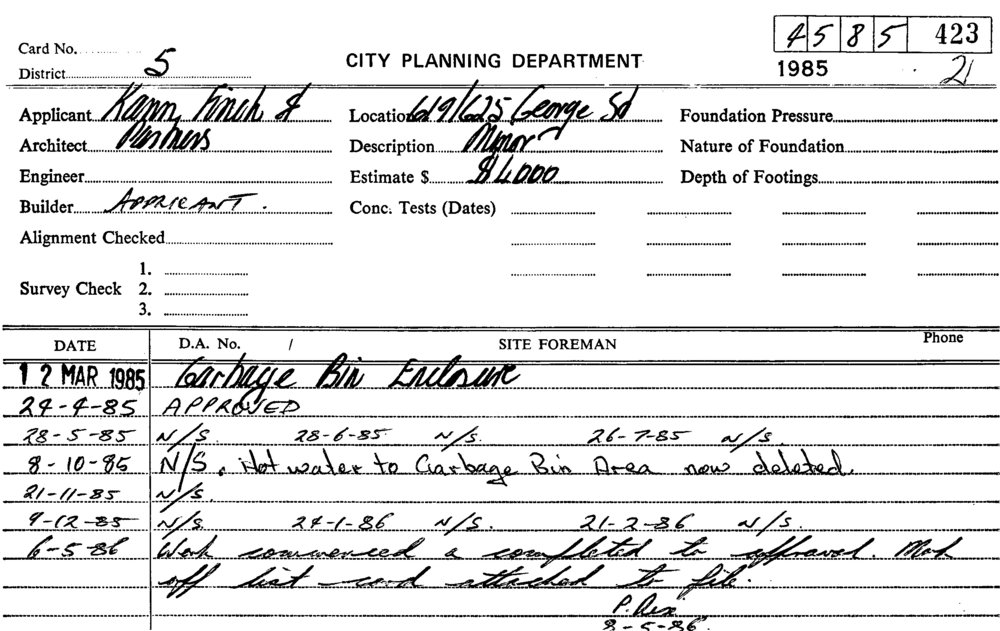 4 5 8 5 423
Card No.
District 5
CITY PLANNING DEPARTMENT
1985 21
Applicant Kann, Finch &
Location 619/625 George St
Foundation Pressure
Architect Partners
Description Minor
Nature of Foundation
Engineer
Estimate $ $4000
Depth of Footings
Builder APPLICANT.
Conc. Tests (Dates)
Alignment Checked
Survey Check 1.
2.
3.
DATE D.A. No. / SITE FOREMAN Phone
12 MAR 1985 Garbage Bin Enclosure
24-4-85 APPROVED
28-5-85 N/S. 28-6-85 N/S. 26-7-85 N/S.
8-10-85 N/S. Hot water to Garbage Bin Area now deleted.
21-11-85 N/S.
9-12-85 N/S. 24-1-86 N/S. 21-2-86 N/S.
6-5-86 Work commenced & completed to approval. Mark
off list card attached to file.
P.
8-5-86.